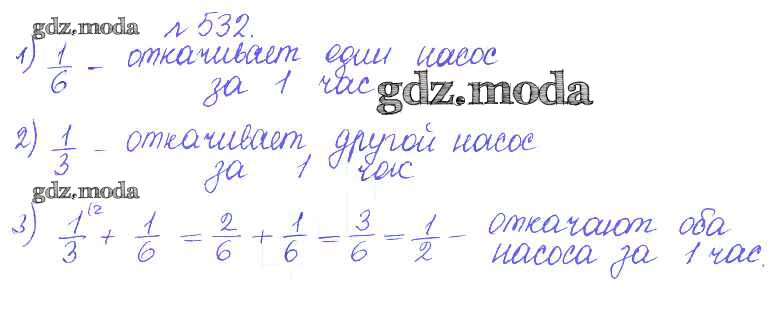 gdz.moda № 532.
1) 1/6 – откачивает один насос
за 1 час
gdz.moda
2) 1/3 – откачивает другой насос
за 1 час
gdz.moda
3) 1/3 (2 + 1/6 = 2/6 + 1/6 = 3/6 = 1/2 – откачают оба
насоса за 1 час.